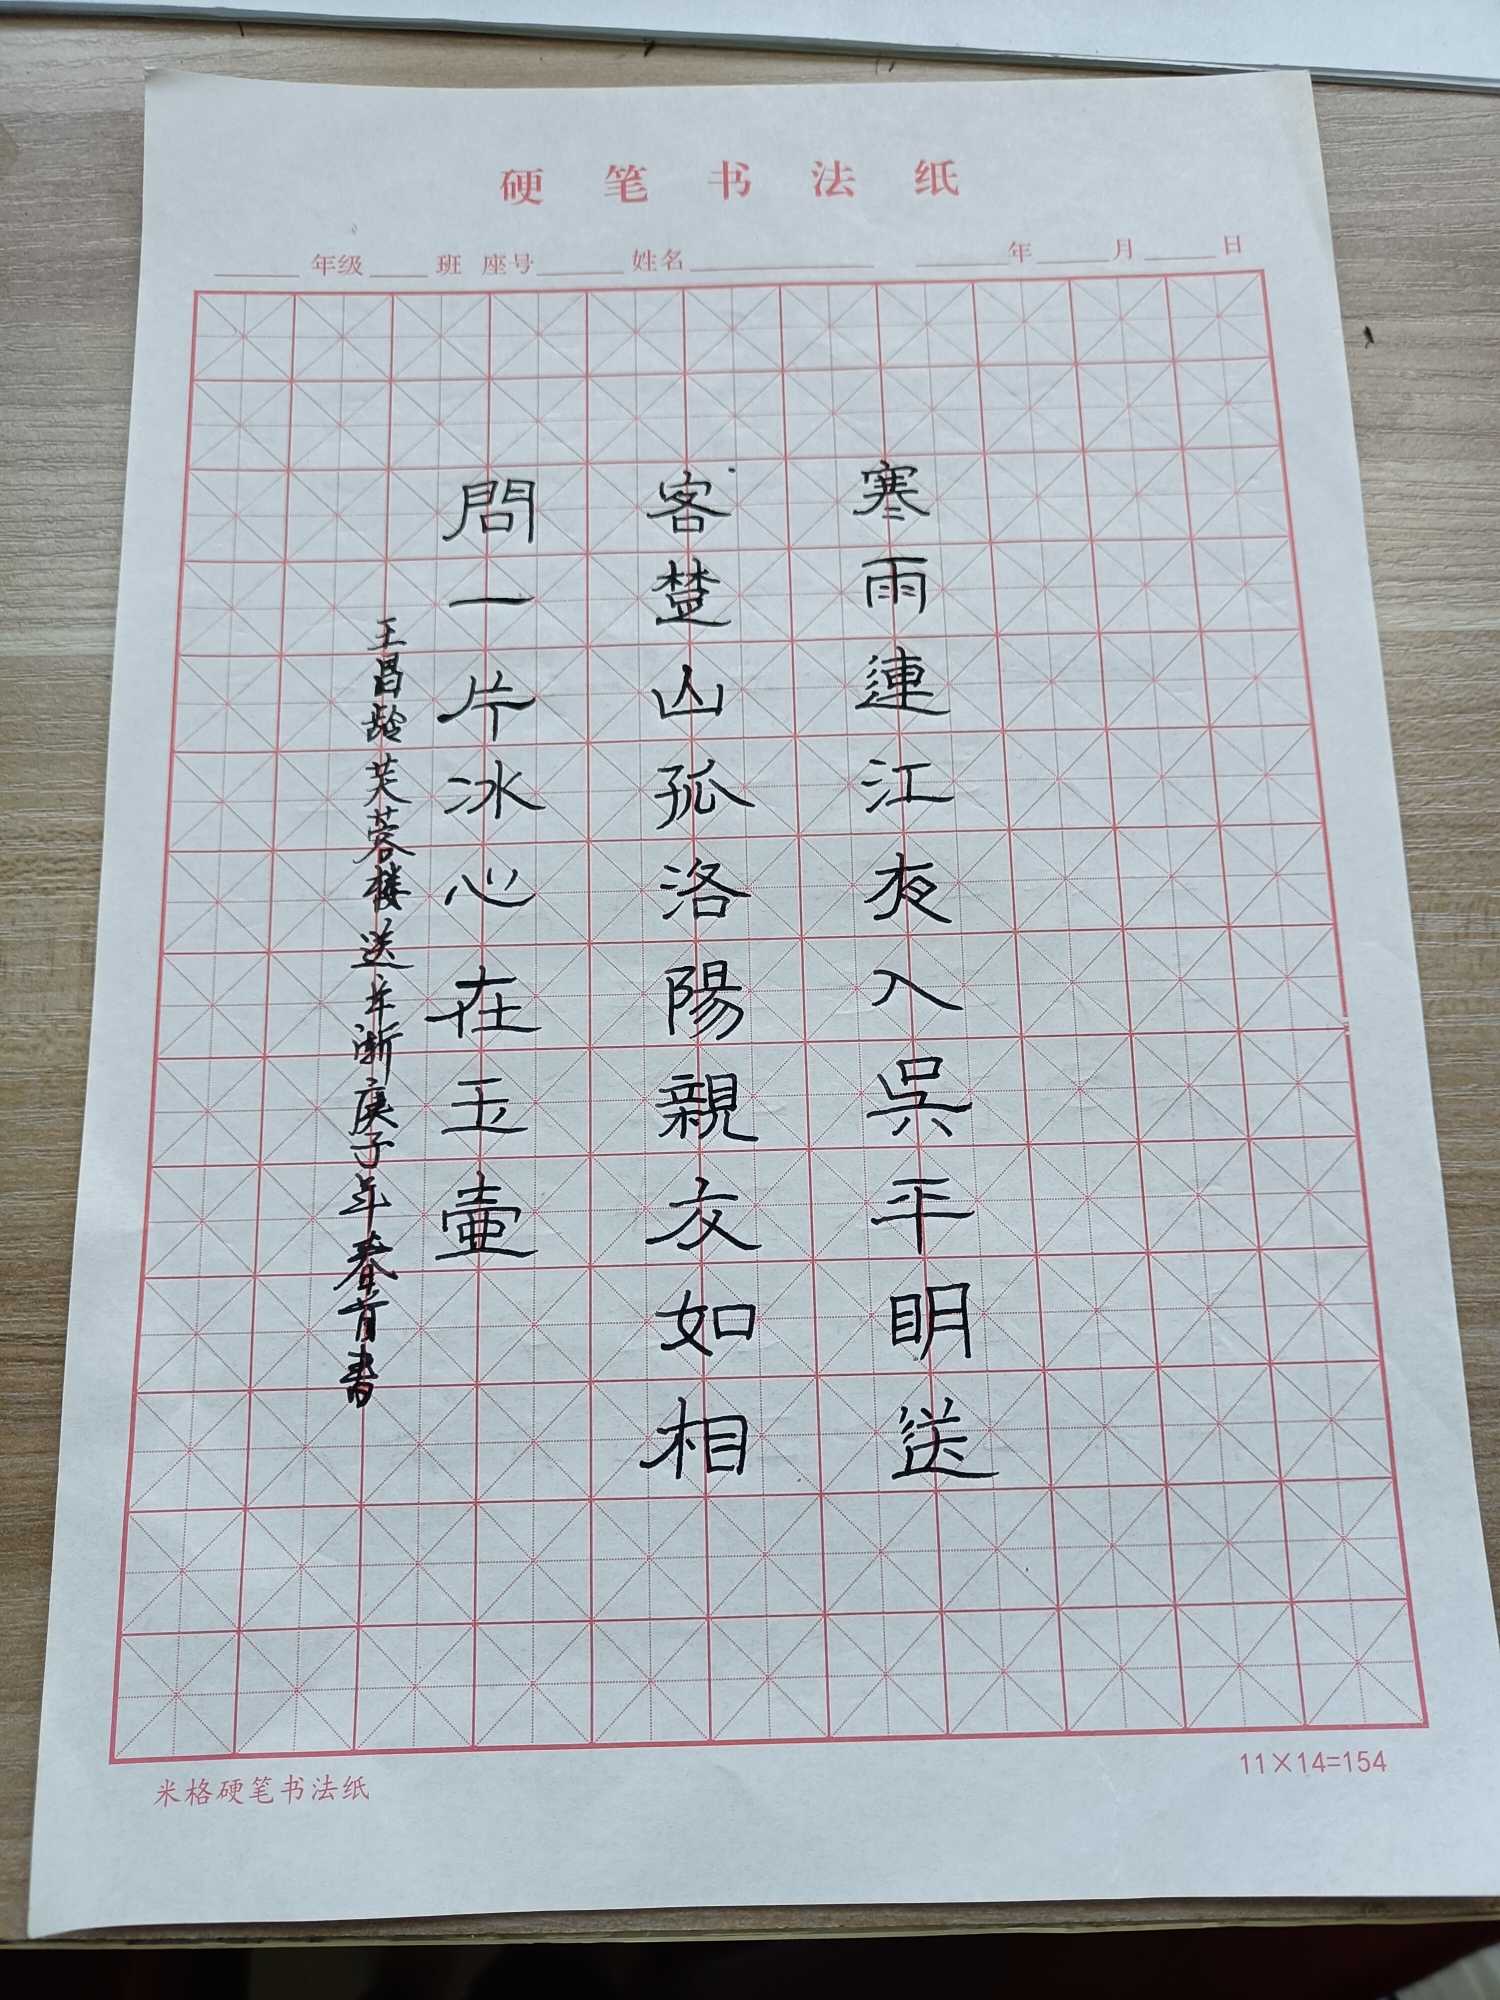 硬笔书法纸
年级 班 座号 姓名 年 月 日
寒雨連江夜入吳平明送
客楚山孤洛陽親友如相
問一片冰心在玉壺
王昌龄芙蓉楼送辛渐庚子年春首書
米格硬笔书法纸
11×14=154